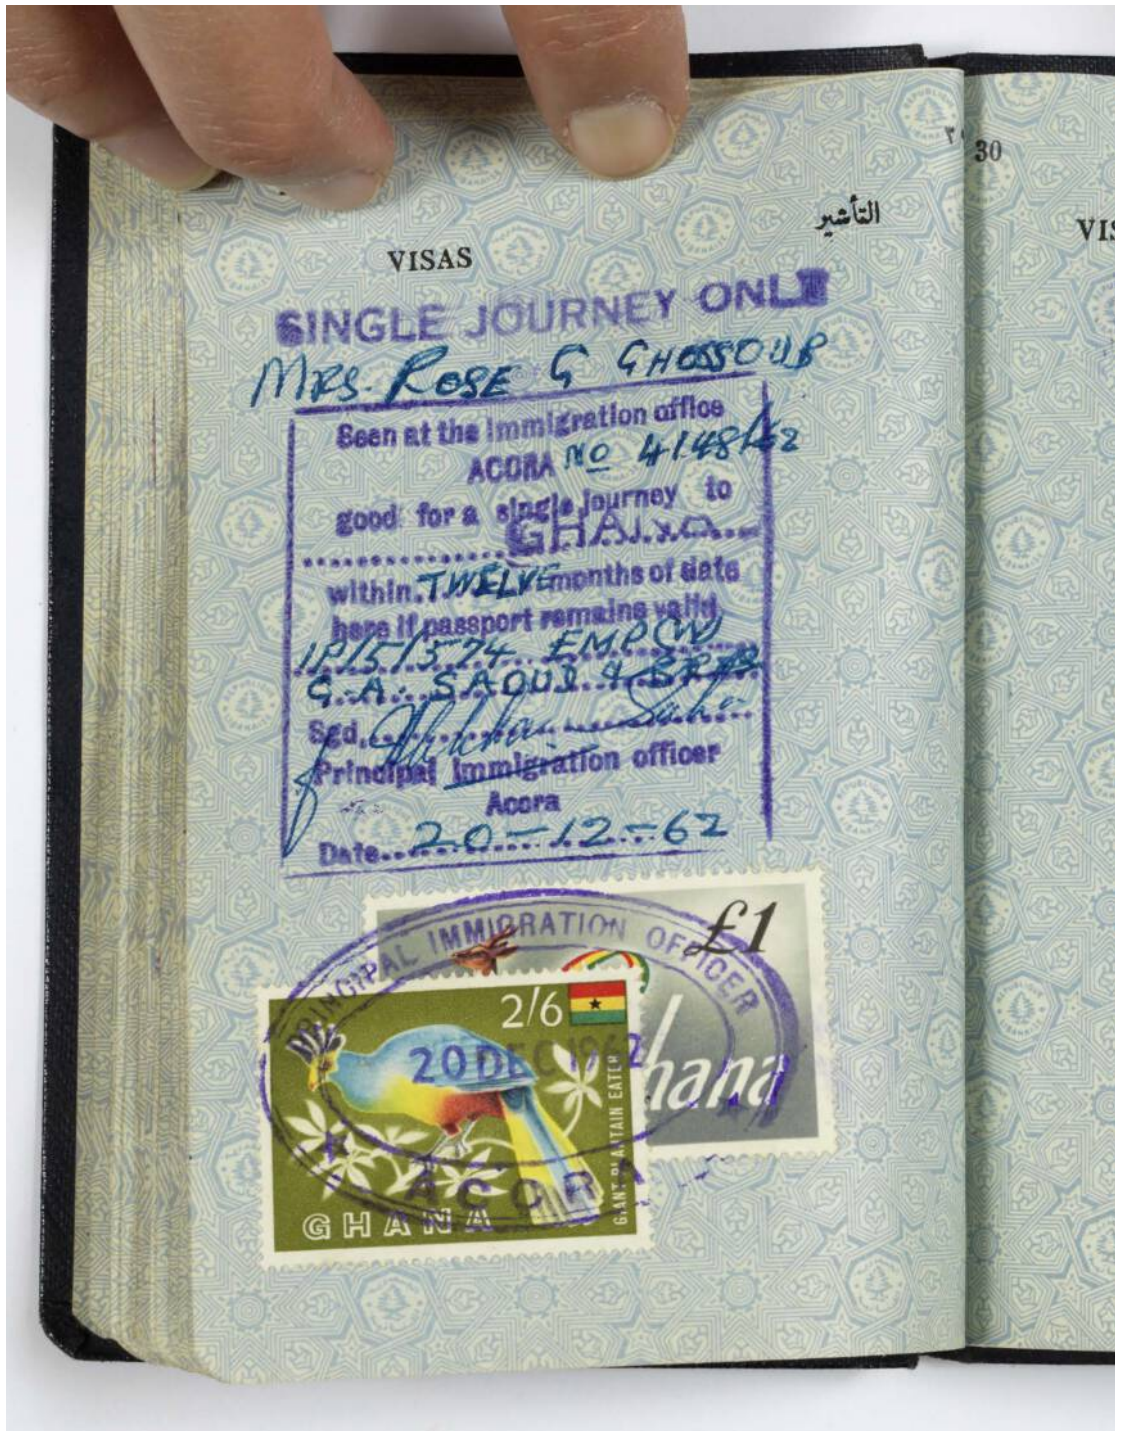 30
VISAS
التأشير
VIS
SINGLE JOURNEY ONLY
MRS. ROSE G GHOSSOUB
Seen at the Immigration office
ACCRA No 4148/62
good for a single journey to
GHANA
within TWELVE months of date
here if passport remains valid
1P/5/3574 EMP(W)
G.A. SAOUI & BROS
Sgd.
Principal Immigration officer
Accra
Date 20-12-62
PRINCIPAL IMMIGRATION OFFICER
£1
2/6
20 DEC 1962
hana
GIANT PLANTAIN EATER
ACCRA
GHANA